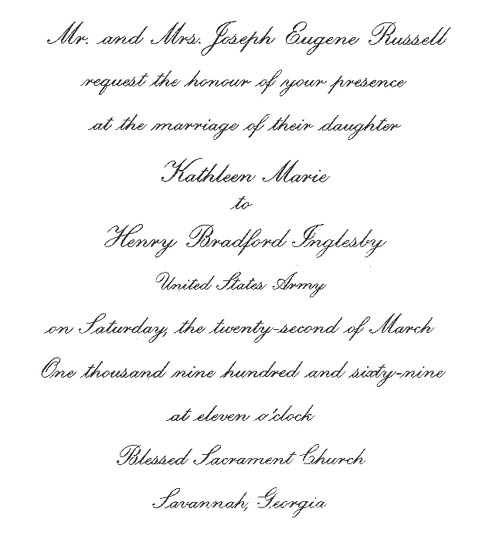 Mr. and Mrs. Joseph Eugene Russell
request the honour of your presence
at the marriage of their daughter
Kathleen Marie
to
Henry Bradford Inglesby
United States Army
on Saturday, the twenty-second of March
One thousand nine hundred and sixty-nine
at eleven o'clock
Blessed Sacrament Church
Savannah, Georgia